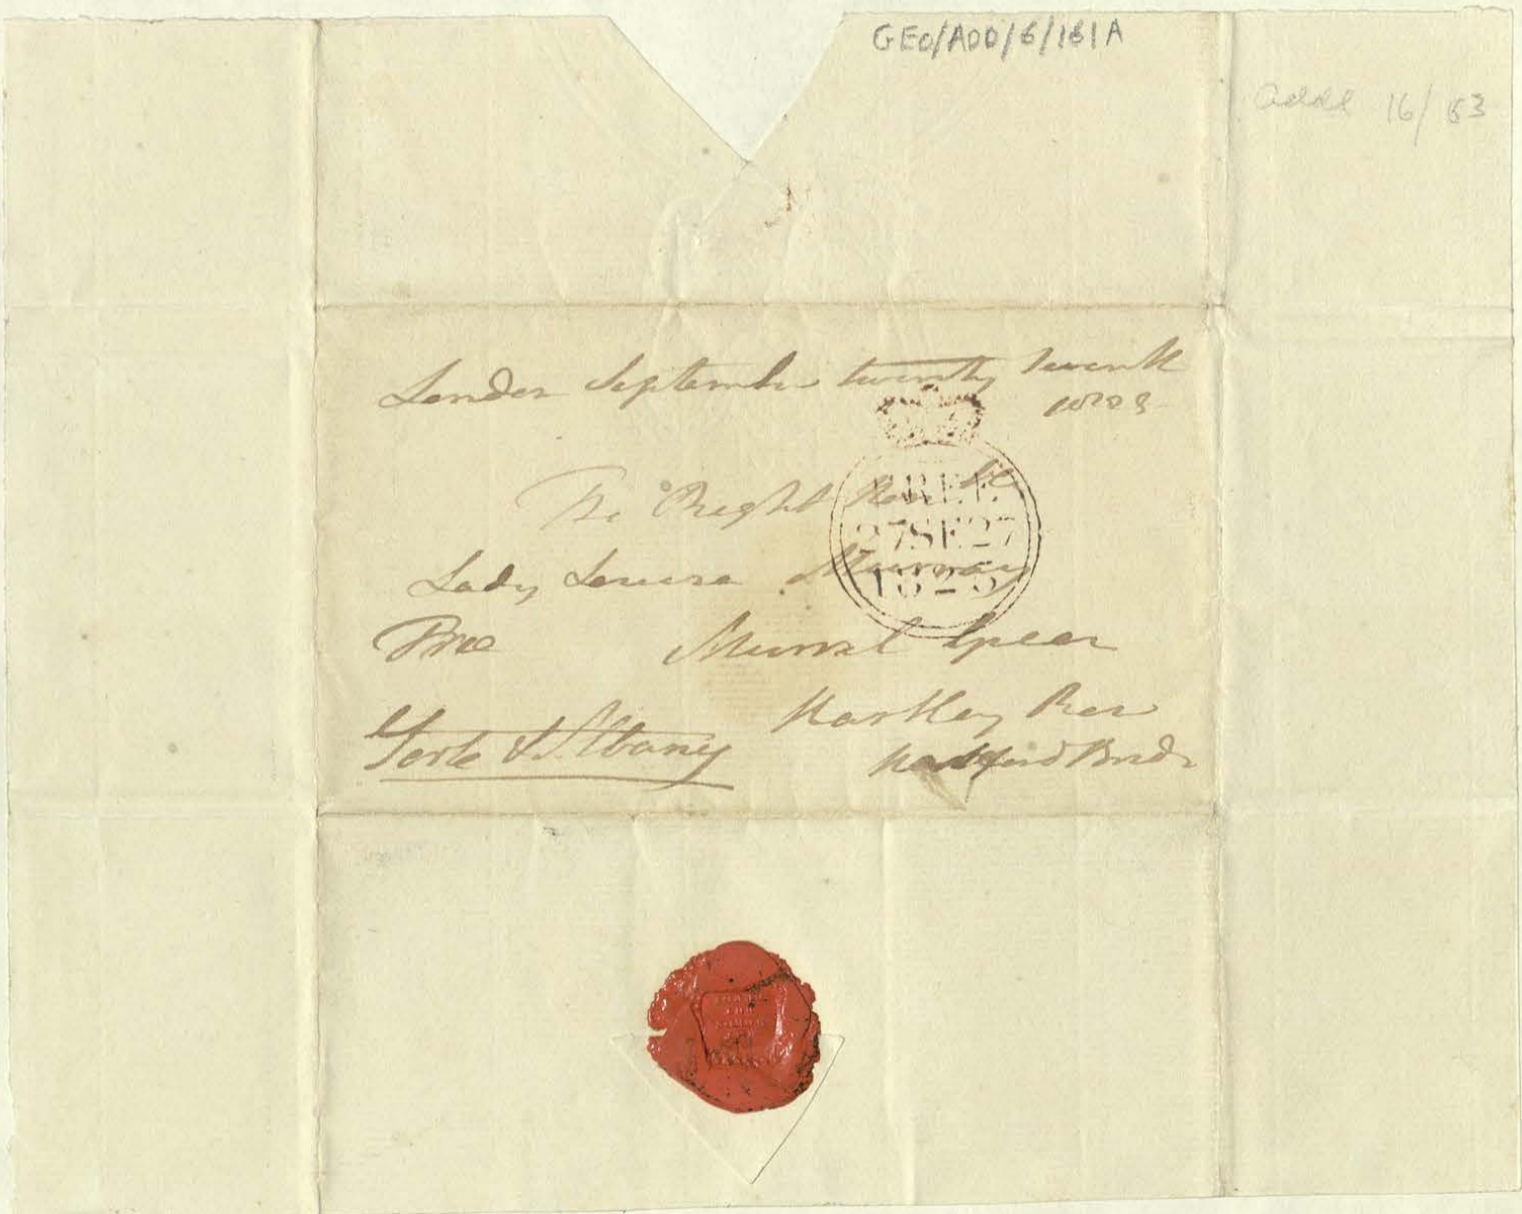 GEO/ADD/6/161A
Addl 16/83
London September twenty seventh
1823
The Right Honble
FREE
27SE27
1823
Lady Louisa Murray
Free
York & Albany
Hartley Row
Hartford Bridge